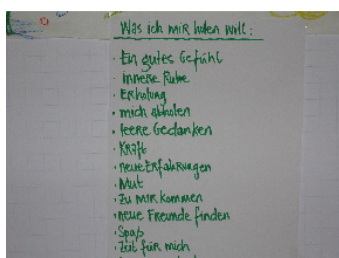 Was ich mir holen will:
· Ein gutes Gefühl
· innere Ruhe
· Erholung
· mich abholen
· leere Gedanken
· Kraft
· neue Erfahrungen
· Mut
· Zu mir kommen
· neue Freunde finden
· Spaß
· Zeit für mich